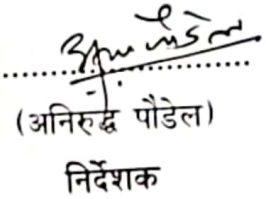 (अनिरुद्ध पौडेल)
निर्देशक